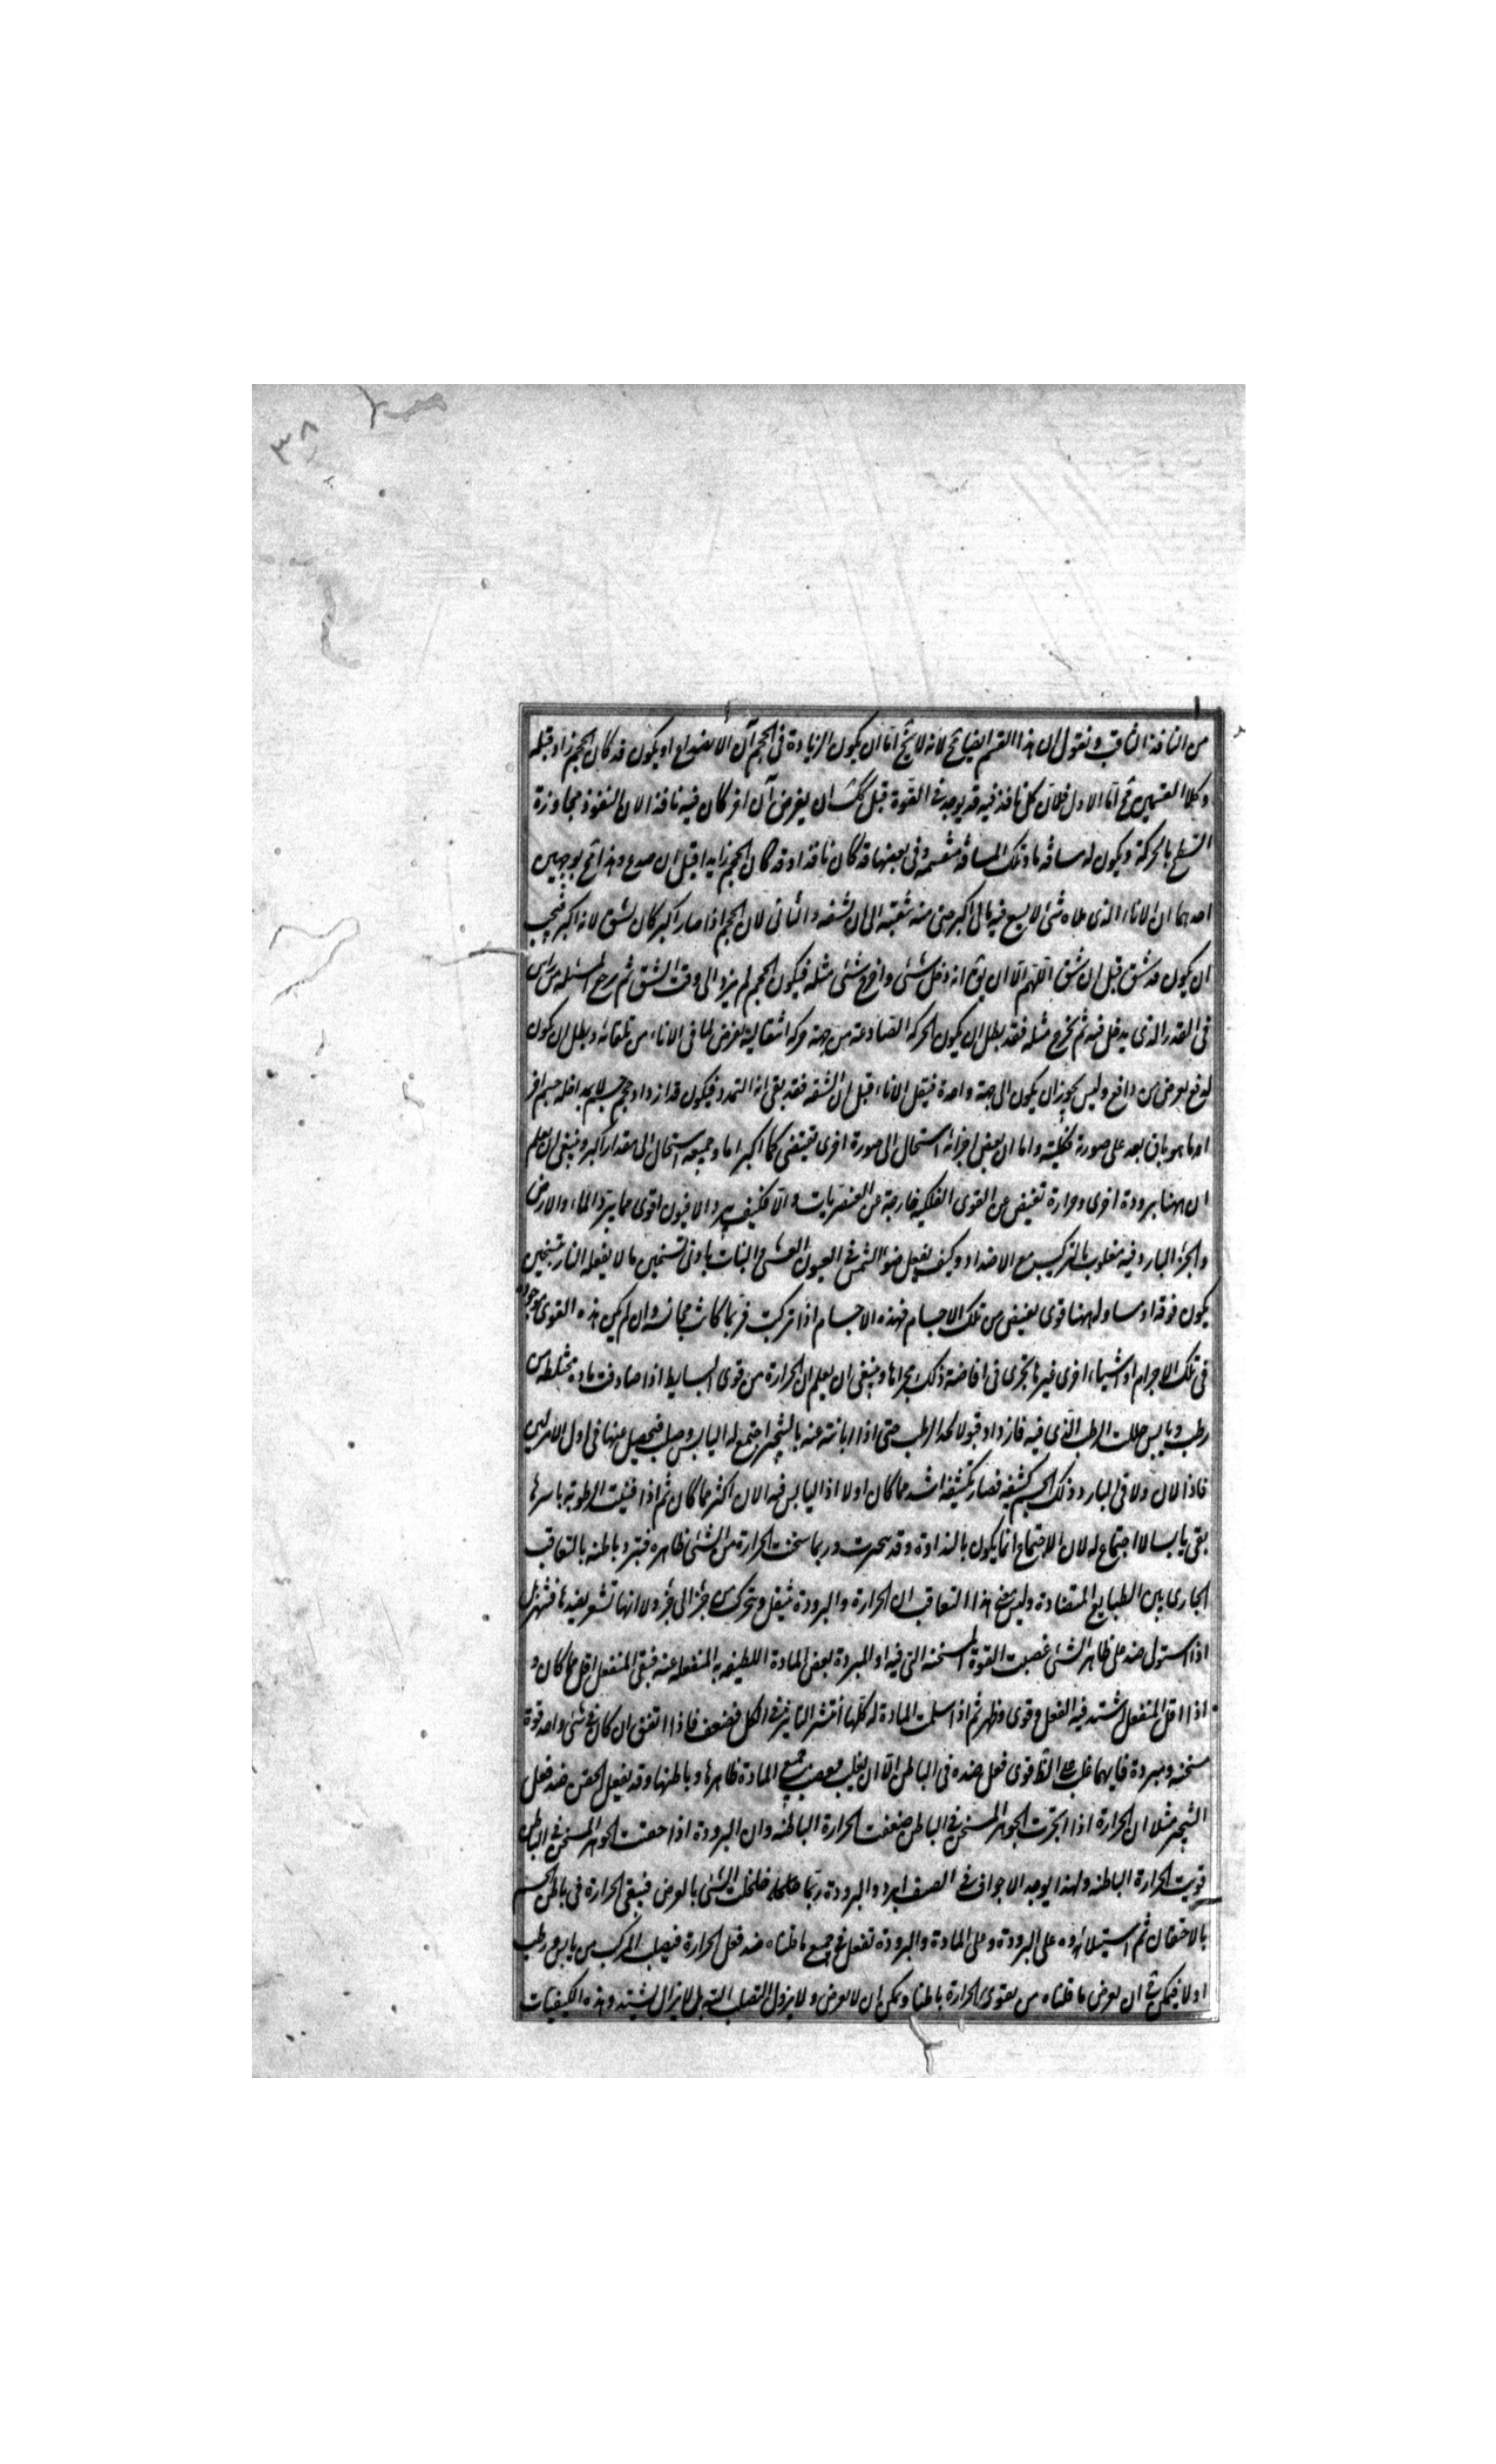 ٣٨
من النافذ الثاقب ونقول ان هذا القسم ايضا مح لانه لا يخ اما ان يكون الزيادة فى الحجم آن الانصداع او يكون قد كان الحجم زاد قبله
وكلا القسمين مح اما الاول فلان كل نافذ فيه قد يوجد فى القوة قبل ان يفرض آن اخر كان فيه نافذا لان النفوذ مجاوزة
السطح بالحركة ويكون له مسافة ما وتلك المسافة منقسمه وفى بعضها قد كان نافذا وقد كان الحجم زايدا قبل ان صدع وهذا مح بوجهين
احدهما ان الاناء الذى ملاه شئ لا يسع فيه مالئ اكبر حتى منه الى ان شقه والثانى لان الحجم اذا صار اكبر كان يشق لانه اكبر فيجب
ان يكون قد شق قبل ان شق اللهم الا ان يق انه دخل شئى واخرج شئى مثله فيكون الحجم لم يزد الى وقت الشق ثم رجع المسئله من راس
فى القدر الذى يدخل فيه ثم يخرج مثله فقد بطل ان يكون الحركة الصادعة من جهة حركه انتقالية يعرض لما فى الاناء من تلقائه وبطل ان يكون
لدفع يعرض من دافع وليس يجوز ان يكون الى جهة واحدة فينقل الاناء قبل ان الشقه فقد بقى انه التمدد فيكون قد ازداد حجم جسم لا بمداخله جسم اخر
اما هو باق بعد على صورة كليته واما ان بعض اجزائه استحال الى صورة اخرى تقتضى كما اكبر اما وجميعه استحال الى مقدار اكبر وينبغى ان يعلم
ان ههنا برودة اخرى وحرارة تفيض عن القوى الفلكيه خارجة عن العنصريات والا فكيف يبرد الافيون اقوى مما يبرد الماء والارض
والجزء البارد فيه مغلوب بالتركيب مع الاضداد وكيف يفعل ضوء الشمس فى العيون العشى والنبات بادنى تسخين ما لا يفعله النار بتسخين
يكون فوقه او مساو له ههنا قوى يفيض من تلك الاجسام فهذه الاجسام اذا تركبت فربما كانت مجانسه وان لم يكن هذه القوى موجوده
فى تلك الاجرام او اشياء اخرى غيرها يجرى فى افاضة ذلك مجراها وينبغى ان يعلم ان الحرارة من قوى البسايط اذا صادفت ماده مختلطه من
رطب ويابس حللت الرطب الذى فيه فازداد قبولا لحد الرطب حتى اذا ابانته عنه بالتبخير اجتمع له اليابس وصلب فيحصل عنها فى اول الامر لين
فاذا لان ولاقى البارد ذلك الجسم كثيفه فصار تكثيفه اشد مما كان اولا اذ اليابس فيه الان اكثر مما كان ثم اذا فنيت الرطوبة باسرها
بقى يابسا لا اجتماع له لان الاجتماع انما يكون بالنداوة وقد وربما سخنت الحرارة من الشئى ظاهره فبرد باطنه بالتعاقب
الجارى بين الطبايع المتضادة وليس معنى هذا التعاقب ان الحرارة والبرودة تنتقل وتتحرك من جزء الى جزء ولا انها تشعر بضدها فتنهزل
اذا استولى ضد على ظاهر الشئى غصبت القوة المسخنه التى فيه او المبردة بعض المادة اللطيفه المنفعله عنه فبقى المنفعل اقل مما كان و
اذا اقل المنفعل اشتد فيه الفعل وقوى وظهر ثم اذا سلمت المادة له كلها انتشر التاثير فى الكل فضعف فاذا اتفق ان كان فى شئى واحد قوة
مسخنه ومبردة فايهما غلب على الظ قوى فعل ضده فى الباطن الا ان يغلب فيغصب جميع المادة ظاهرها وباطنها وقد يفعل الحقن ضد فعل
التبخير مثلا ان الحرارة اذا اتجرت الجوهر المسخن فى الباطن ضعفت الحرارة الباطنه وان البرودة اذا حقنت الجوهر المسخن فى الباطن
قويت الحرارة الباطنه ولهذا يوجد الاجواف فى الصيف ابرد والبرودة ربما خلخلت الشئى بالعرض فيبقى الحرارة فى باطن الجسم
بالاحتقان ثم استيلائه على البرودة وعلى المادة والبرودة تفعل فى جميع ما قلناه ضد فعل الحرارة فيصلب المركب من يابس ورطب
اولا فيمكن فى ان يعرض ما قلناه من تقوى الحرارة باطنا ويمكن ان لا يعرض ولا يزول التصلب البتة بل لا يزال يشتد وهذه الكيفيات